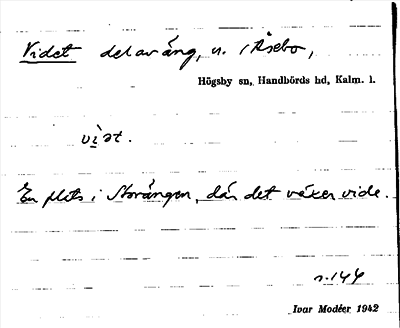 Videt del av äng, n. i Åsebo,
Högsby sn, Handbörds hd, Kalm. l.
vìət.
En plets i Storängen, där det växer vide.
s. 144
Ivar Modéer 1942